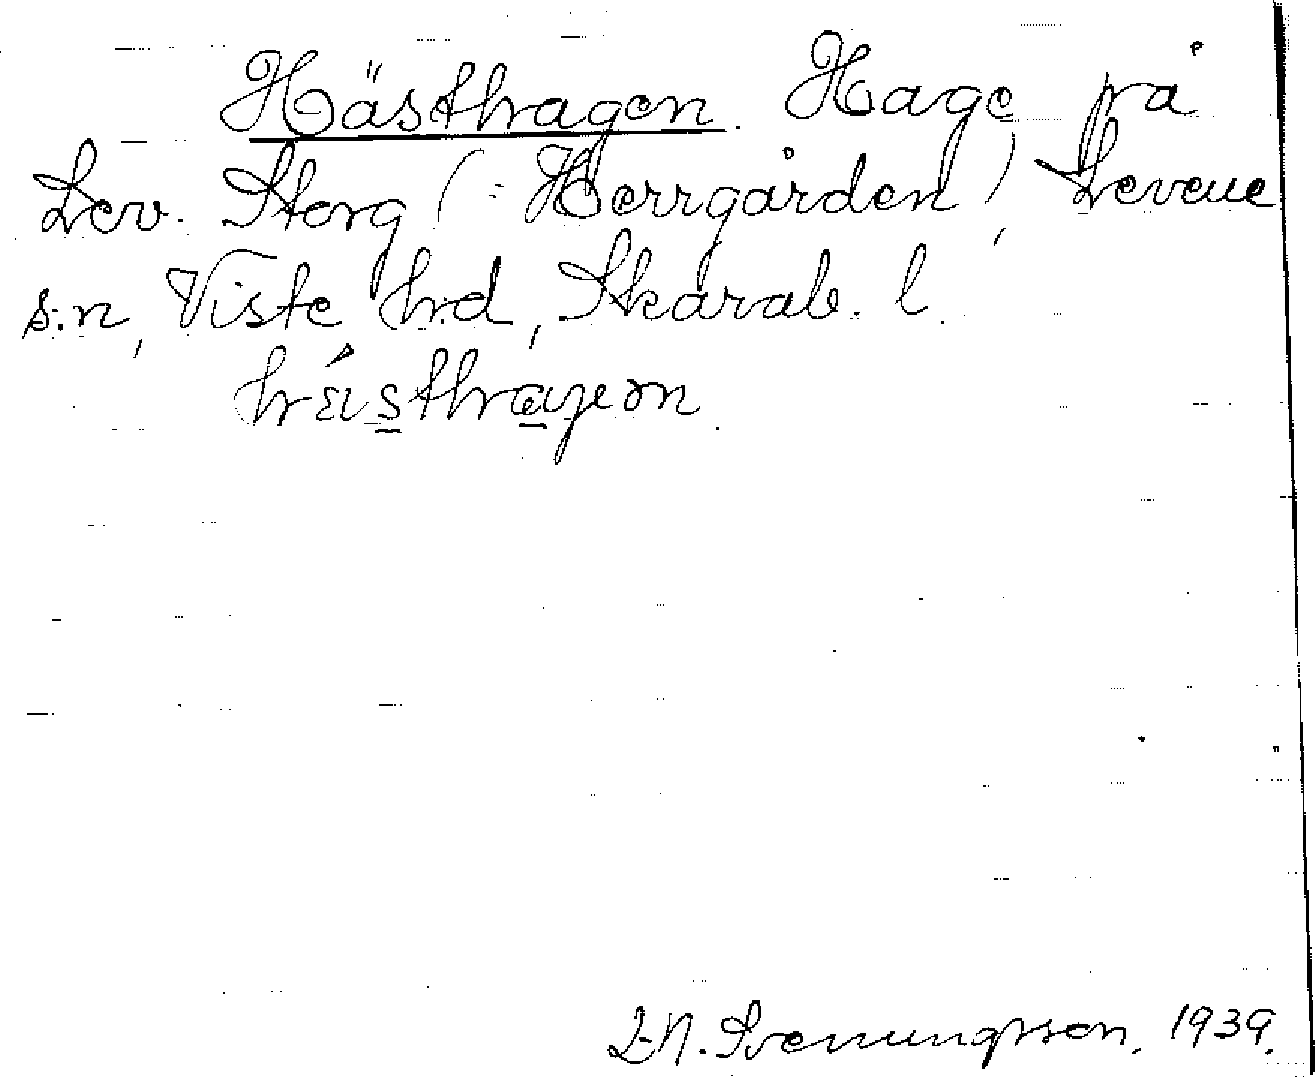 Hästhagen. Hage på
Lev. Storg (= Herrgården), Levene
s:n, Viste hrd, Skarab. l.
L-N. Svenungsson. 1939.